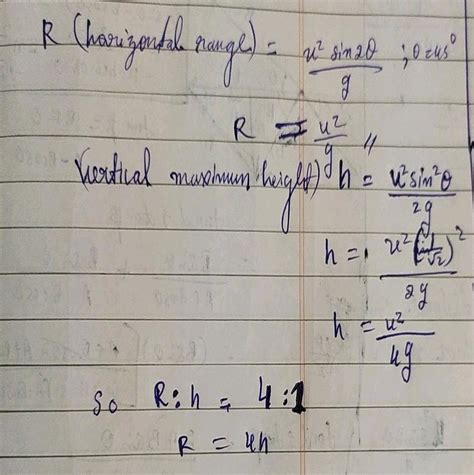 R (horizontal range) = u² sin2θ / g ; θ=45°
R = u² / g "
(vertical maximum height) h = u² sin²θ / 2g
h = u² (1/√2)² / 2g
h = u² / 4g
So R:h = 4:1
R = 4h